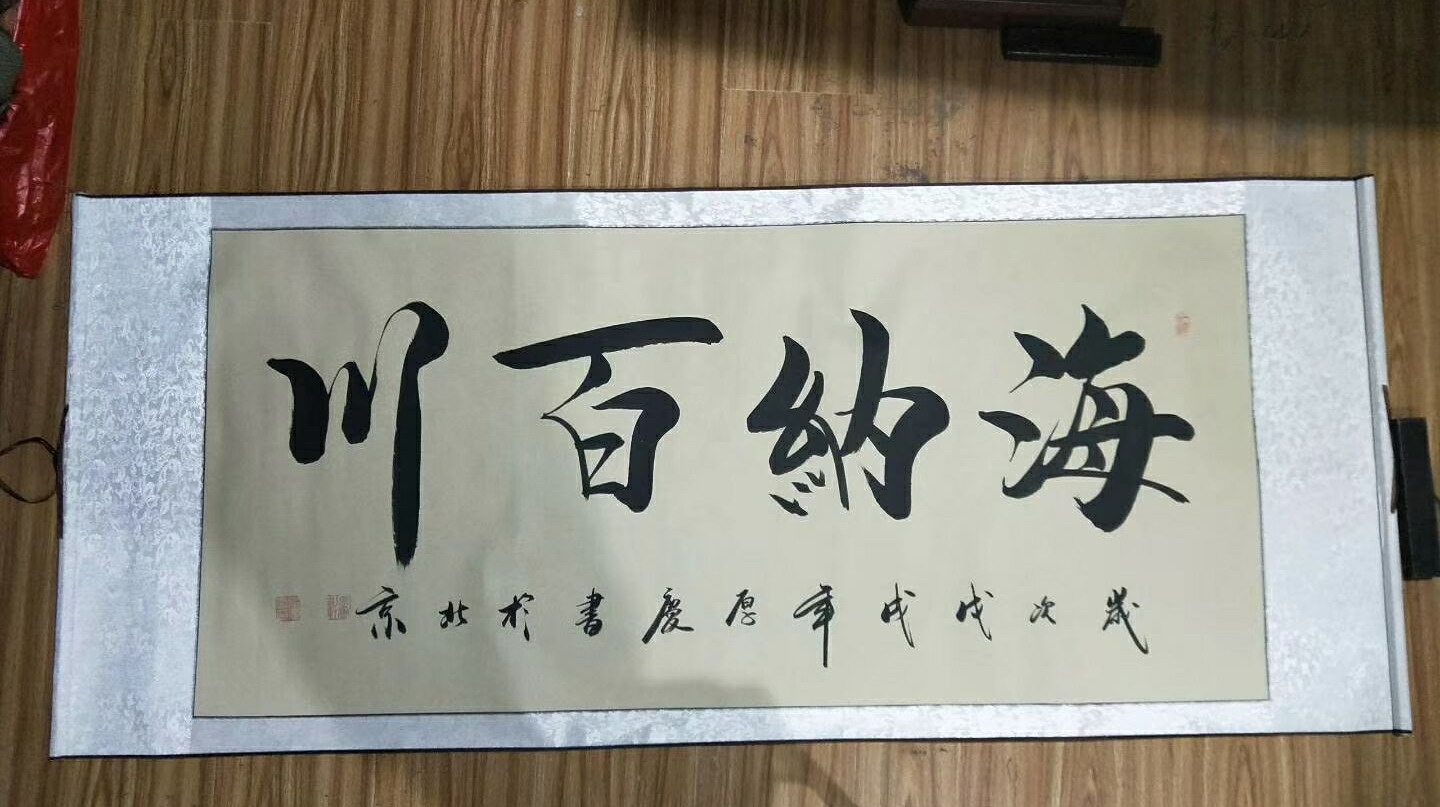 海納百川
歲次戊戌年厚慶書於北京